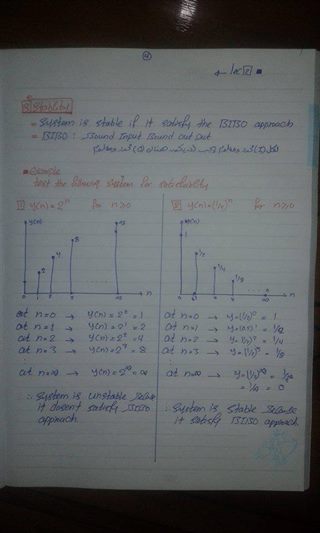 ④
← Lec 2 ■
3 Stability
= System is stable if it satisfy the BIBO approach
= BIBO : Bound Input Bound out put
■ Example
test the following system for
1 y(n) = 2ⁿ for n≥0
y(n)
1 2 4 8 ∞
0 1 2 3 ...... ∞ n
at n=0 → y(n) = 2⁰ = 1
at n=1 → y(n) = 2¹ = 2
at n=2 → y(n) = 2² = 4
at n=3 → y(n) = 2³ = 8
at n=∞ → y(n) = 2^∞ = ∞
∴ System is unstable
it doesn't satisfy BIBO
approach
2 y(n) = (1/2)ⁿ for n≥0
y(n)
1 1/2 1/4 1/8
n
at n=0 → y = (1/2)⁰ = 1
at n=1 → y = (1/2)¹ = 1/2
at n=2 → y = (1/2)² = 1/4
at n=3 → y = (1/2)³ = 1/8
at n=∞ → y = (1/2)^∞ = 1/2^∞
= 1/∞ = 0
∴ System is stable
it satisfy BIBO approach